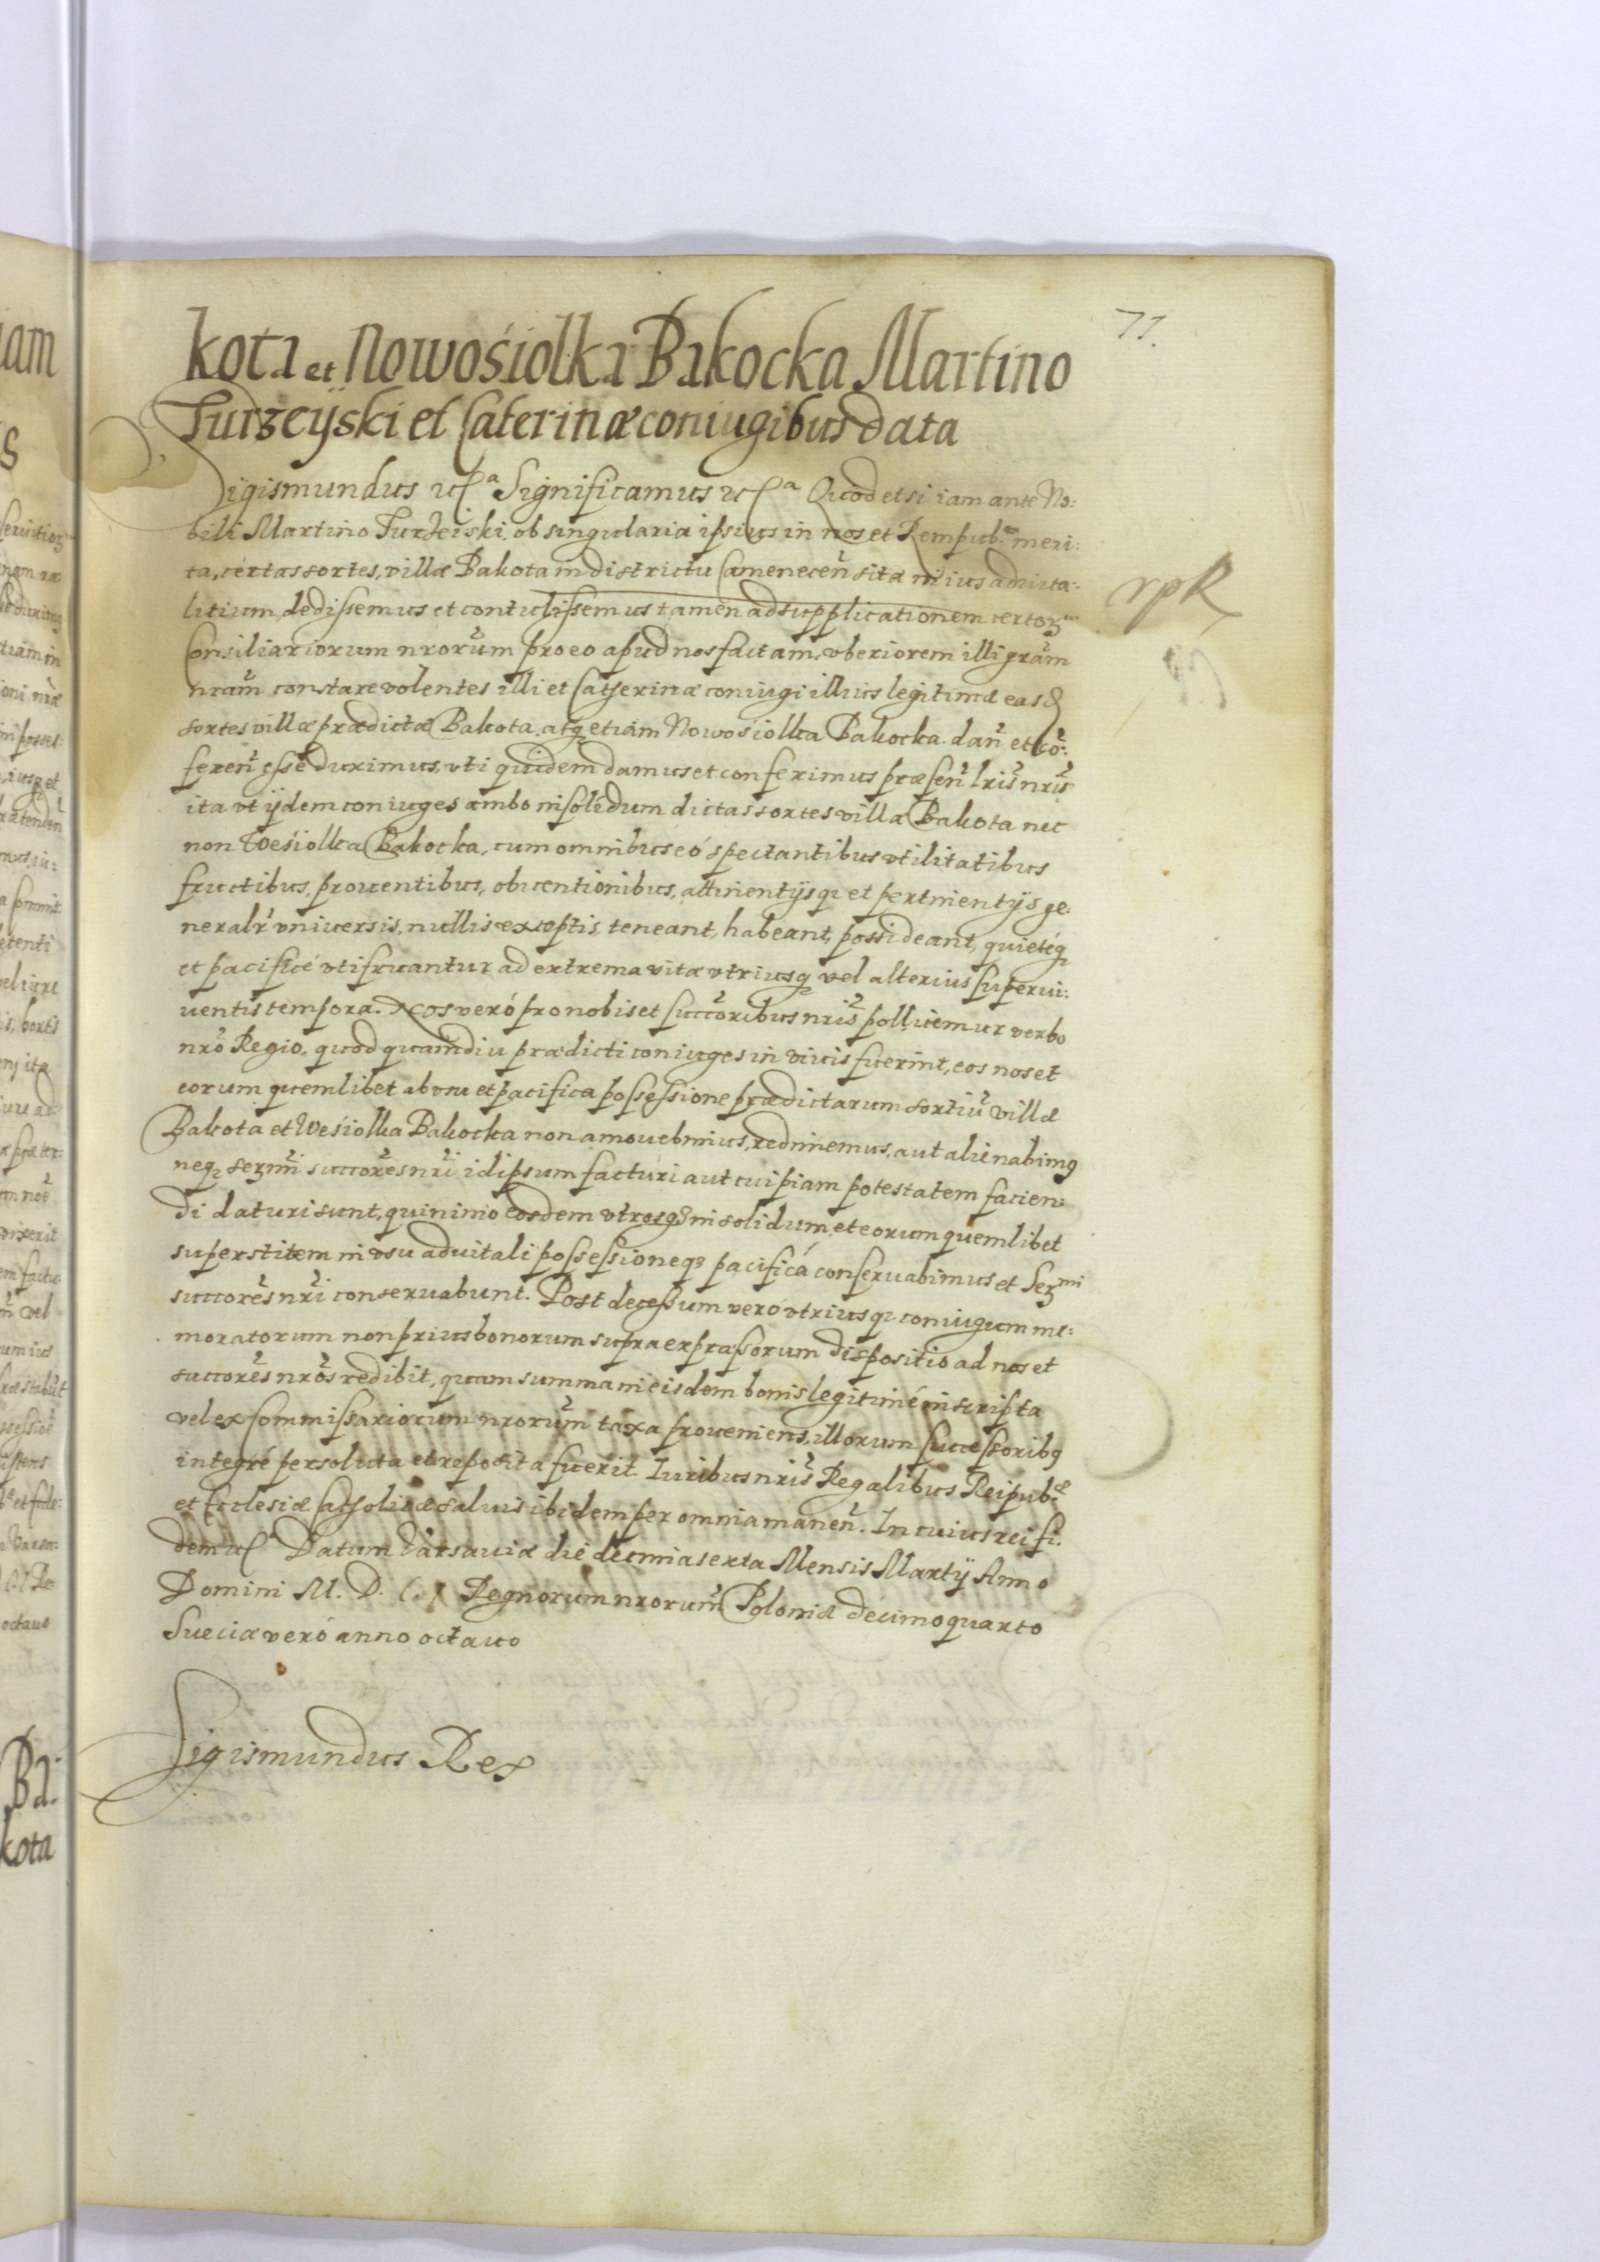 71.
kota et Nowośiolka Bakocka Martino
Turzeyski et Caterinæ coniugibus data
Sigismundus etcª Significamus etcª Quod etsi iam ante No:
bili Martino Turzeiski, ob singularia ipsius in nos et Rempub:am meri:
ta, certas sortes, villæ Bakota in districtu Camenecen̄ sitæ in ius aduita:
litium dedissemus et contulissemus tamen ad supplicationem certoꝝ
Consiliariorum nrorum̄ pro eo apud nos factam, vberiorem illi gram̄
nram̄ constare volentes illi et Catherinæ coniugi illius legitimæ easd
sortes villæ prædictæ Bakota, atqꝫ etiam Nowosiolka Bakocka dan̄ et co̅:
feren̄ esse duximus, vti quidem damus et conferimus præsen̄ lris̄ nris̄
ita vt ijdem coniuges ambo in solidum dictas sortes villæ Bakota nec
non Weśiolka Bakocka, cum omnibus eó spectantibus vtilitatibus
fructibus, prouentibus, obuentionibus, attinentijsqꝫ et pertinentijs ge:
neralr̄ vniuersis, nullis exceptis, teneant, habeant, possideant, quietéqꝫ
et pacificé vtifruantur ad extrema vitæ vtriusqꝫ vel alterius superui:
uentis tempora. Nos veró pro nobis et succoribus̄ nris̄ pollicemur verbo
nro̅ Regio, quod quamdiu prædicti coniuges in viuis fuerint, eos nos et
eorum quemlibet ab vsu et pacifica possessione prædictarum sortiu̅ villæ
Bakota et Weśiolka Bakocka non amouebimus, redimemus, aut alienabimꝰ
neqꝫ serꝫmi succores̄ nri̅ id ipsum facturi aut cuipiam potestatem facien:
di daturi sunt, quinimo eosdem vtrosqꝫ in solidum, et eorum quemlibet
superstitem in vsu aduitali possessioneqꝫ pacificá conseruabimus et Serꝫmi
succores̄ nri̅ conseruabunt. Post decessum veró vtriusqꝫ coniugum me:
moratorum non prius bonorum supra expressorum dispositio ad nos et
succores̄ nros̄ redibit, quam summa in eisdem bonis legitimé inscripta
vel ex Commissariorum nrorum̄ taxa proueniens, illorum successoribꝰ
integré persoluta et reposita fuerit. Iuribus nris̄ Regalibus Reipub:æ
et Ecclesiæ Catholicæ saluis ibidem per omnia manen̄. In cuius rei fi:
dem etc Datum Varsauiæ die decima sexta Mensis Martij Anno
Domini M. D. C. I Regnorum nrorum̄ Poloniæ decimo quarto
Sueciæ veró anno octauo
Sigismundus Rex